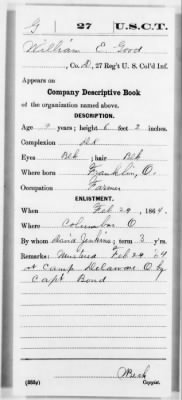 G | 27 | U.S.C.T.
William E. Good
, Co. D, 27 Reg't U. S. Col'd Inf.
Appears on
Company Descriptive Book
of the organization named above.
DESCRIPTION.
Age years; height 6 feet 2 inches.
Complexion Dk
Eyes Blk; hair Blk
Where born Franklin, O.
Occupation Farmer
ENLISTMENT.
When Feb 29, 1864.
Where Columbus O
By whom Jenkins; term 3 y'rs.
Remarks: Mustered Feb 29 '64
at Camp Delaware O by
Capt Bond
(383g) Copyist.